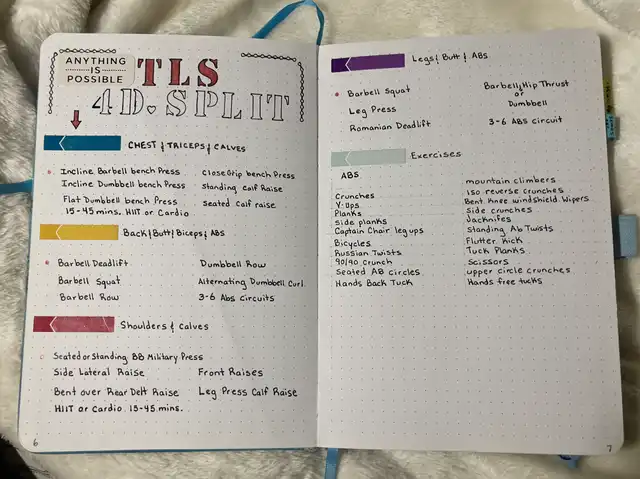 ANYTHING
IS
POSSIBLE
TLS
4D. SPLIT
CHEST & TRICEPS & CALVES
Incline Barbell bench Press
Close Grip bench Press
Incline Dumbbell bench Press
Standing Calf Raise
Flat Dumbbell bench Press
Seated Calf raise
15-45 mins. HIIT or Cardio
Back & Butt & Biceps & ABS
Barbell Deadlift
Dumbbell Row
Barbell Squat
Alternating Dumbbell Curl
Barbell Row
3-6 Abs Circuits
Shoulders & Calves
Seated or Standing BB Military Press
Side Lateral Raise
Front Raises
Bent over Rear Delt Raise
Leg Press Calf Raise
HIIT or Cardio 15-45 mins.
6
Legs & Butt & ABS
Barbell Squat
Barbell Hip Thrust
or
Leg Press
Dumbbell
Romanian Deadlift
3-6 ABS Circuit
Exercises
ABS
Crunches
V-Ups
Planks
Side planks
Captain Chair leg ups
Bicycles
Russian Twists
90/90 Crunch
Seated AB circles
Hands Back Tuck
mountain climbers
iso reverse crunches
Bent Knee windshield Wipers
Side crunches
Jacknifes
Standing Ab Twists
Flutter Kick
Tuck Planks
Scissors
upper circle crunches
Hands free tucks
7